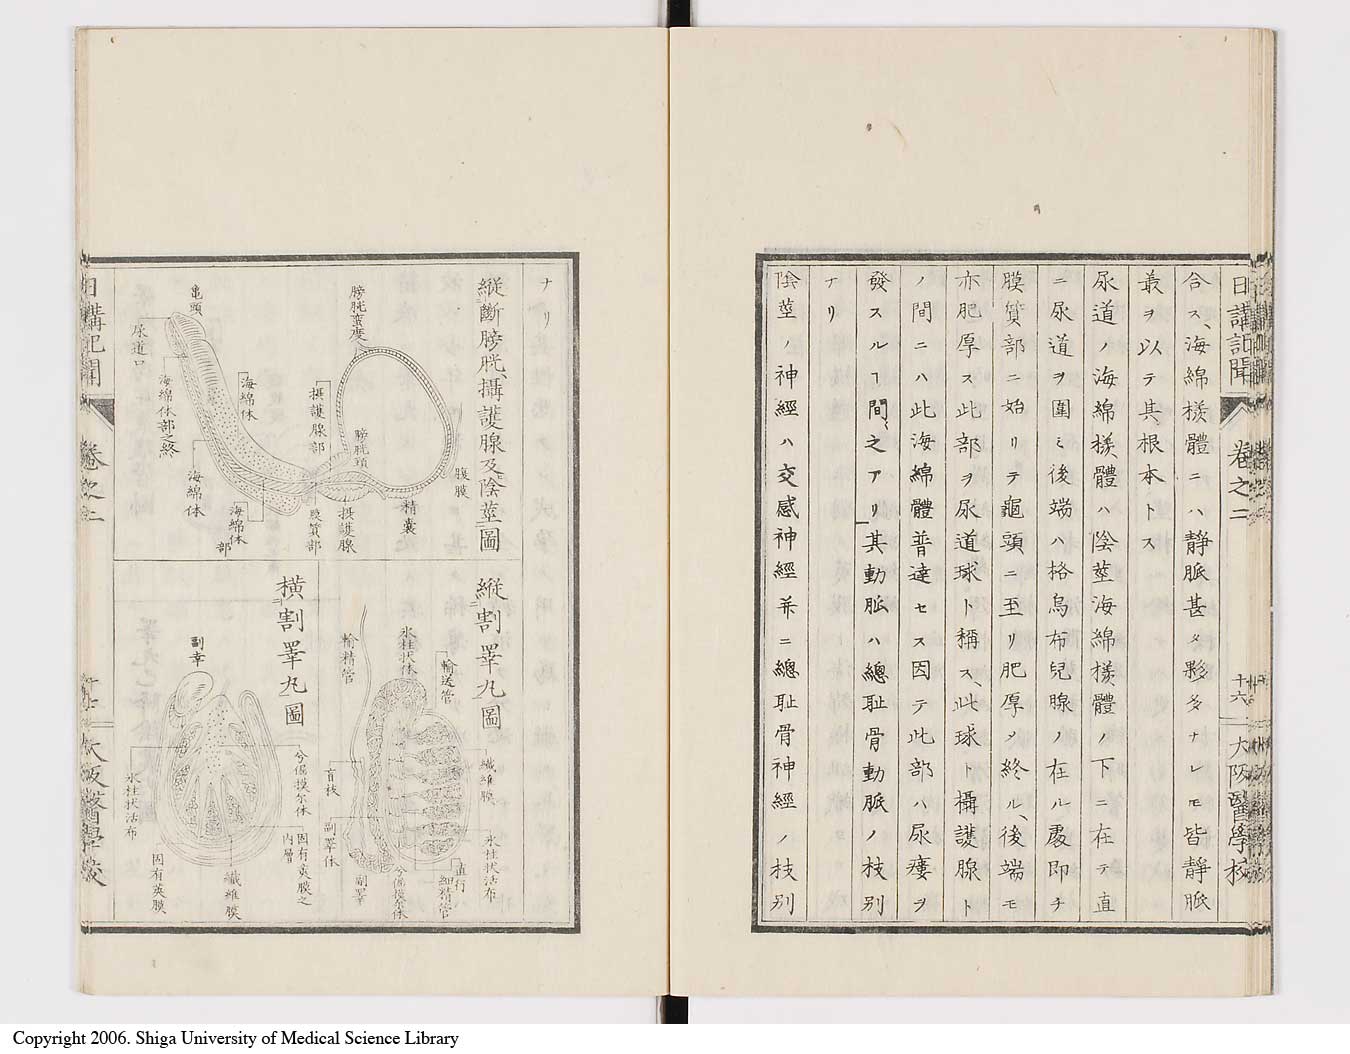 日講記聞
卷之二
十六
大阪醫學校
合ス、海綿樣體ニハ静脈甚タ夥多ナレモ皆静脈
叢ヲ以テ其根本トス
尿道ノ海綿樣體ハ陰莖海綿樣體ノ下ニ在テ直
ニ尿道ヲ圍ミ後端ハ格烏布兒腺ノ在ル處即チ
膜質部ニ始リテ龜頭ニ至リ肥厚ノ終ル、後端モ
亦肥厚ス此部ヲ尿道球ト稱ス、此球ト攝護腺ト
ノ間ニハ此海綿體普達セス因テ此部ハ尿瘻ヲ
發スルヿ間〻之アリ其動脈ハ總耻骨動脈ノ枝別
ナリ
陰莖ノ神經ハ交感神經并ニ總耻骨神經ノ枝別
ナリ
縱斷膀胱、攝護腺及陰莖圖
膀胱蛮度
腹膜
精囊
膀胱頸
摂護腺部
摂護腺
膜質部
海綿体
海綿体部
海綿体
海綿体部之終
亀頭
尿道口
縱割睪丸圖
氷柱状体
輸送管
輸精管
纎維膜
氷柱状活布
直行
細精管
盲枝
副睪体
副睪
橫割睪丸圖
副睾
氷柱状活布
固有莢膜
纎維膜
固有莢膜之
内層
日講記聞
卷之二
大阪醫學校
Copyright 2006. Shiga University of Medical Science Library